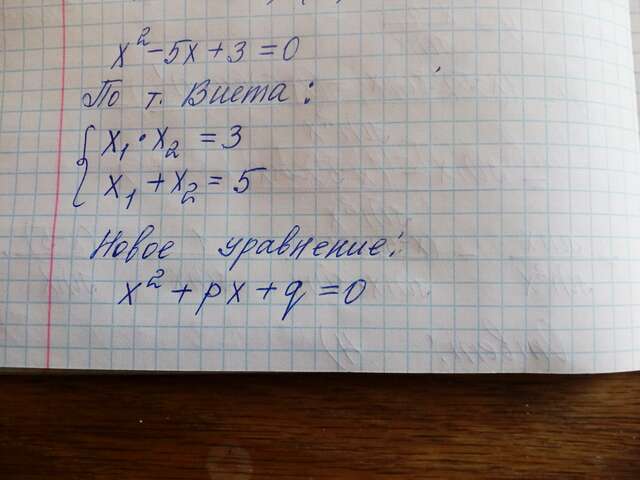 x² - 5x + 3 = 0
По т. Виета:
x₁ · x₂ = 3
x₁ + x₂ = 5
Новое уравнение:
x² + px + q = 0